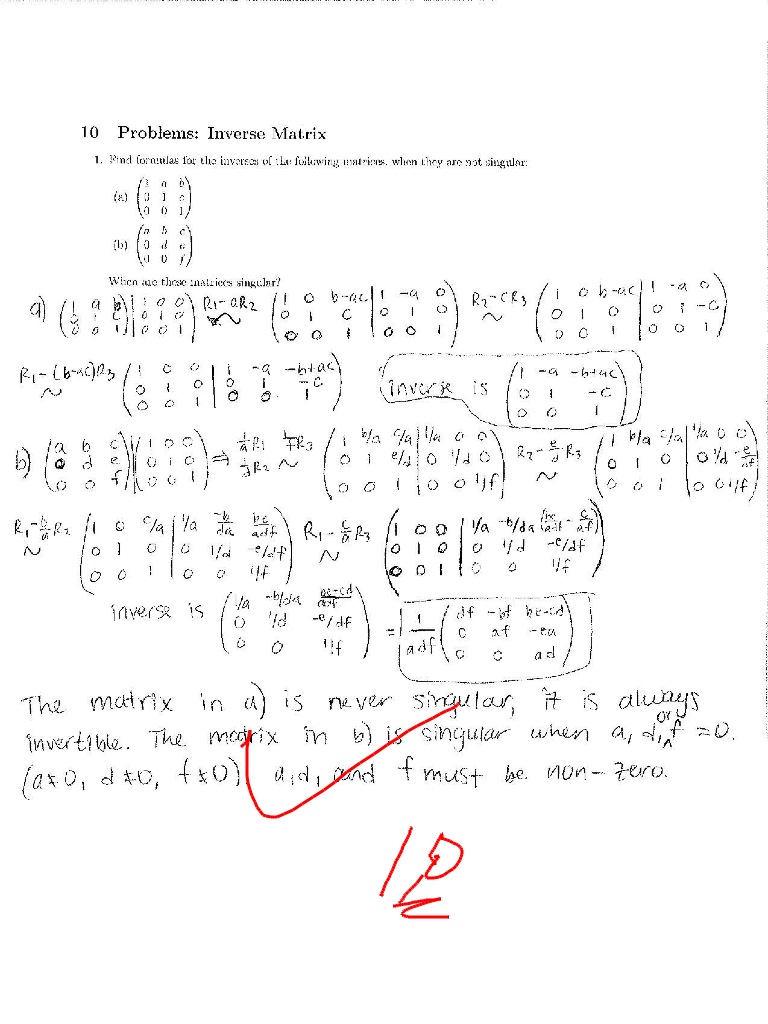 10 Problems: Inverse Matrix
1. Find formulas for the inverses of the following matrices, when they are not singular:
(a) (1 a b
0 1 c
0 0 1)
(b) (a b c
0 d e
0 0 f)
When are these matrices singular?
a) (1 a b | 1 0 0
0 1 c | 0 1 0
0 0 1 | 0 0 1) R₁-aR₂ ~ (1 0 b-ac | 1 -a 0
0 1 c | 0 1 0
0 0 1 | 0 0 1) R₂-cR₃ ~ (1 0 b-ac | 1 -a 0
0 1 0 | 0 1 -c
0 0 1 | 0 0 1)
R₁-(b-ac)R₃ ~ (1 0 0 | 1 -a -b+ac
0 1 0 | 0 1 -c
0 0 1 | 0 0 1) inverse is (1 -a -b+ac
0 1 -c
0 0 1)
b) (a b c | 1 0 0
0 d e | 0 1 0
0 0 f | 0 0 1) ⇒ 1/a R₁ 1/f R₃ 1/d R₂ ~ (1 b/a c/a | 1/a 0 0
0 1 e/d | 0 1/d 0
0 0 1 | 0 0 1/f) R₂-e/d R₃ ~ (1 b/a c/a | 1/a 0 0
0 1 0 | 0 1/d -e/df
0 0 1 | 0 0 1/f)
R₁-b/a R₂ ~ (1 0 c/a | 1/a -b/da be/adf
0 1 0 | 0 1/d -e/df
0 0 1 | 0 0 1/f) R₁-c/a R₃ ~ (1 0 0 | 1/a -b/da (be/adf - c/af)
0 1 0 | 0 1/d -e/df
0 0 1 | 0 0 1/f)
inverse is (1/a -b/da be-cd/adf
0 1/d -e/df
0 0 1/f) = 1/adf (df -bf be-cd
0 af -ea
0 0 ad)
The matrix in a) is never singular, it is always
invertible. The matrix in b) is singular when a, d, or f =0.
(a≠0, d≠0, f≠0) a,d, and f must be non-zero.